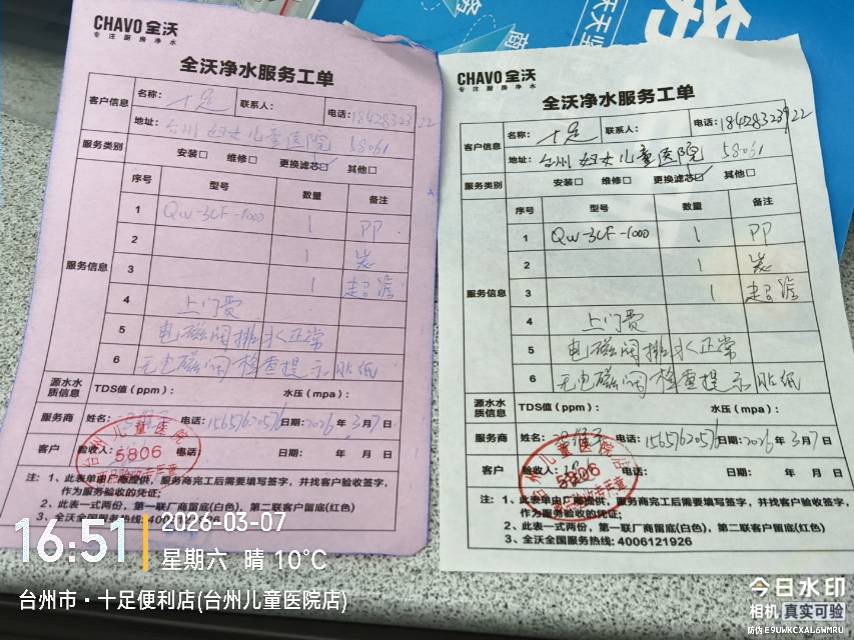 CHAVO 全沃
专注厨房净水
全沃净水服务工单
客户信息
名称: 十足
联系人:
电话: 18428323922
地址: 台州妇女儿童医院 58061
服务类别
安装□ 维修□ 更换滤芯☑ 其他□
序号 型号 数量 备注
服务信息
1 QW-3CF-1000 1 PP
2 1 炭
3 1 超滤
4 上门费
5 电磁阀排水正常
6 无电磁阀检查提示贴纸
源水水质信息
TDS值(ppm): 水压(mpa):
服务商 姓名: 电话: 15657620576 日期: 2026年3月7日
客户 验收人: 电话: 日期: 年 月 日
台州儿童医院
5806
注: 1、此表单由厂商提供,服务商完工后需要填写签字,并找客户验收签字,
作为服务验收的凭证;
2、此表一式两份,第一联厂商留底(白色),第二联客户留底(红色)
3、全沃全国服务热线: 400
CHAVO 全沃
专注厨房净水
全沃净水服务工单
客户信息
名称: 十足
联系人:
电话: 18428323922
地址: 台州妇女儿童医院 58061
服务类别
安装□ 维修□ 更换滤芯☑ 其他□
序号 型号 数量 备注
服务信息
1 QW-3CF-1000 1 PP
2 1 炭
3 1 超滤
4 上门费
5 电磁阀排水正常
6 无电磁阀检查提示贴纸
源水水质信息
TDS值(ppm): 水压(mpa):
服务商 姓名: 电话: 15657620576 日期: 2026年3月7日
客户 验收人: 电话: 日期: 年 月 日
儿童医院
5806
注: 1、此表单由厂商提供,服务商完工后需要填写签字,并找客户验收签字,
作为服务验收的凭证;
2、此表一式两份,第一联厂商留底(白色),第二联客户留底(红色)
3、全沃全国服务热线: 4006121926
16:51
2026-03-07
星期六 晴 10℃
台州市·十足便利店(台州儿童医院店)
今日水印
相机 真实可验
防伪 E9UWKCXAL6WMRU